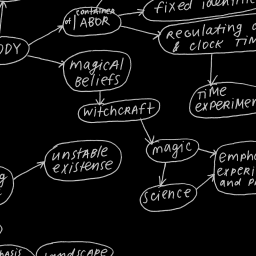 container
of LABOR
fixed identi
REGULATING
& CLOCK TIM
ODY
MAGICAL
BELIEFS
TIME
EXPERIMEN
WITCHCRAFT
UNSTABLE
EXISTENSE
MAGIC
EMPH
EXPERI
AND P
SCIENCE
LANDSCAPE